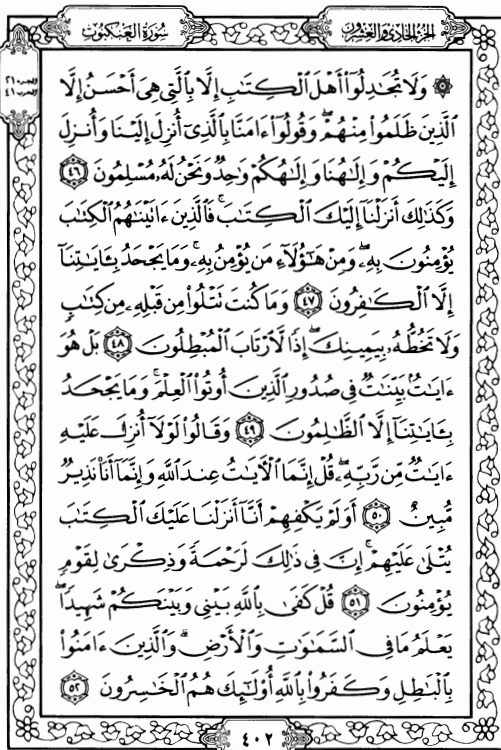 الجزء الحادي والعشرون
سُورَةُ العَنكبُوت
الجزء ٢١
الحزب ٤١
۞ وَلَا تُجَٰدِلُوٓا۟ أَهْلَ ٱلْكِتَٰبِ إِلَّا بِٱلَّتِى هِىَ أَحْسَنُ إِلَّا
ٱلَّذِينَ ظَلَمُوا۟ مِنْهُمْ ۖ وَقُولُوٓا۟ ءَامَنَّا بِٱلَّذِىٓ أُنزِلَ إِلَيْنَا وَأُنزِلَ
إِلَيْكُمْ وَإِلَٰهُنَا وَإِلَٰهُكُمْ وَٰحِدٌ وَنَحْنُ لَهُۥ مُسْلِمُونَ ٤٦
وَكَذَٰلِكَ أَنزَلْنَآ إِلَيْكَ ٱلْكِتَٰبَ ۚ فَٱلَّذِينَ ءَاتَيْنَٰهُمُ ٱلْكِتَٰبَ
يُؤْمِنُونَ بِهِۦ ۖ وَمِنْ هَٰٓؤُلَآءِ مَن يُؤْمِنُ بِهِۦ ۚ وَمَا يَجْحَدُ بِـَٔايَٰتِنَآ
إِلَّا ٱلْكَٰفِرُونَ ٤٧ وَمَا كُنتَ تَتْلُوا۟ مِن قَبْلِهِۦ مِن كِتَٰبٍ
وَلَا تَخُطُّهُۥ بِيَمِينِكَ ۖ إِذًا لَّٱرْتَابَ ٱلْمُبْطِلُونَ ٤٨ بَلْ هُوَ
ءَايَٰتٌۢ بَيِّنَٰتٌ فِى صُدُورِ ٱلَّذِينَ أُوتُوا۟ ٱلْعِلْمَ ۚ وَمَا يَجْحَدُ
بِـَٔايَٰتِنَآ إِلَّا ٱلظَّٰلِمُونَ ٤٩ وَقَالُوا۟ لَوْلَآ أُنزِلَ عَلَيْهِ
ءَايَٰتٌ مِّن رَّبِّهِۦ ۖ قُلْ إِنَّمَا ٱلْءَايَٰتُ عِندَ ٱللَّهِ وَإِنَّمَآ أَنَا۠ نَذِيرٌ
مُّبِينٌ ٥٠ أَوَلَمْ يَكْفِهِمْ أَنَّآ أَنزَلْنَا عَلَيْكَ ٱلْكِتَٰبَ
يُتْلَىٰ عَلَيْهِمْ ۚ إِنَّ فِى ذَٰلِكَ لَرَحْمَةً وَذِكْرَىٰ لِقَوْمٍ
يُؤْمِنُونَ ٥١ قُلْ كَفَىٰ بِٱللَّهِ بَيْنِى وَبَيْنَكُمْ شَهِيدًا ۖ
يَعْلَمُ مَا فِى ٱلسَّمَٰوَٰتِ وَٱلْأَرْضِ ۗ وَٱلَّذِينَ ءَامَنُوا۟
بِٱلْبَٰطِلِ وَكَفَرُوا۟ بِٱللَّهِ أُو۟لَٰٓئِكَ هُمُ ٱلْخَٰسِرُونَ ٥٢
٤٠٢